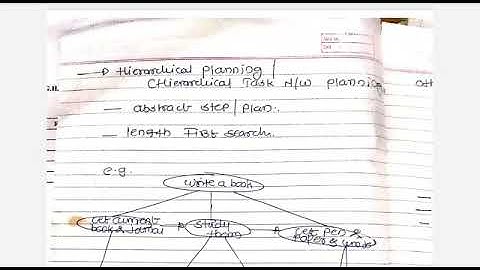 → Hierarchical planning /
CHierarchical Task N/w planning,
— abstract step / plan.
— length First search.
e.g.
write a book
Get current
book & format
study
them
Get pen &
paper &